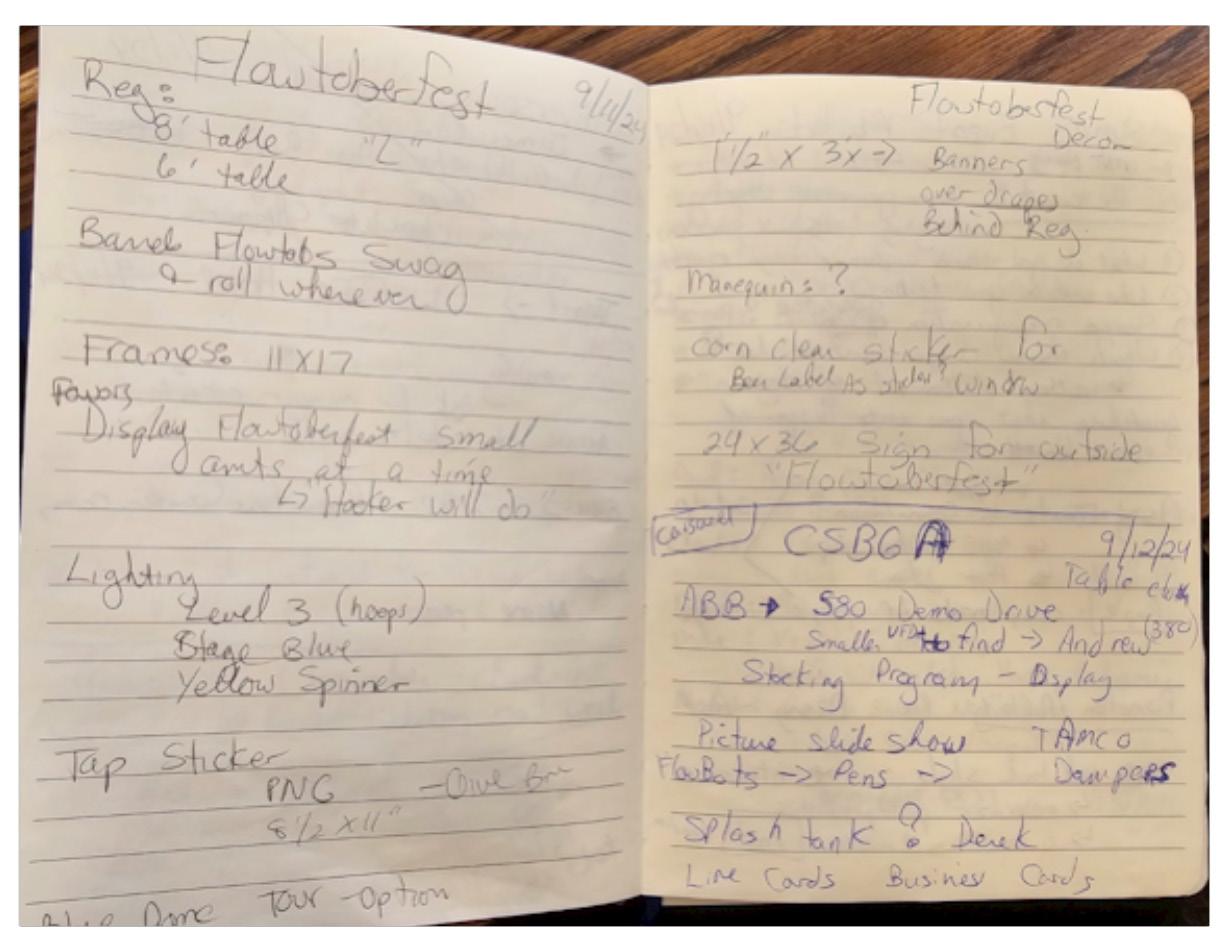 Flowtoberfest 9/11/24
Reg:
8' table "L"
6' table
Barrels Flowtobs Swag
& roll wherever
Frames: 11X17
Favors
Display Flowtoberfest small
amts at a time
↳ "Hooker will do"
Lighting
Level 3 (hoops)
Stage Blue
Yellow Spinner
Tap Sticker
PNG
8 1/2 X 11"
Blue Dome Tour - Option
Flowtoberfest
Decor
1 1/2" X 3' X -> Banners
over drapes
Behind Reg.
Manequins?
corn clear sticker for
Beer Label As sticker? window
24 x 36 Sign for outside
"Flowtoberfest"
Carousel CSBGA 9/12/24
Table cloth
ABB -> 580 Demo Drive
Smaller VFD to find -> Andrew (380)
Stocking Program - Display
Picture slide show TAMCO
FlowBots -> Pens -> Dampers
Splash tank ? Derek
Line Cards Busines Cards